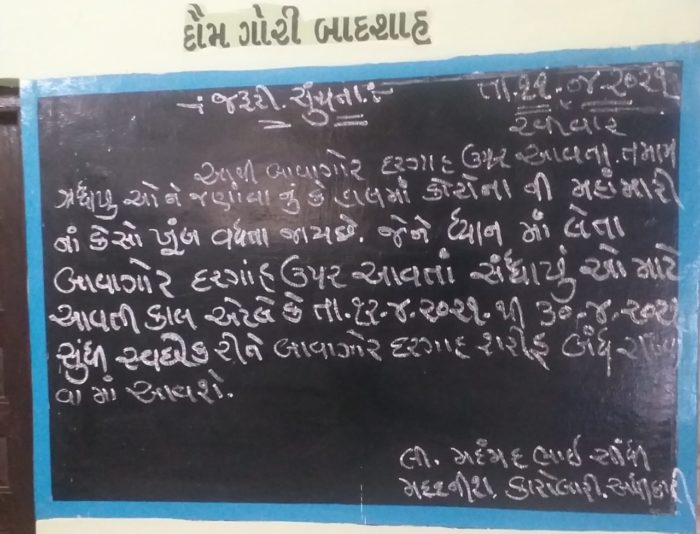 દૌમ ગોરી બાદશાહ
-: જરૂરી સુચના :- તા.૧૧.૪.૨૦૨૧
રવીવાર
આથી બાવાગોર દરગાહ ઉપર આવતા તમામ
શ્રધ્ધાળુ ઓને જણાવા નું કે હાલમાં કોરોના ની મહામારી
નાં કેસો ખુંબ વધતા જાય છે. જેને ધ્યાન માં લેતા
બાવાગોર દરગાહ ઉપર આવતાં શ્રધ્ધાળું ઓ માટે
આવતી કાલ એટલે કે તા.૧૨.૪.૨૦૨૧.થી ૩૦.૪.૨૦૨૧
સુંધી રીને બાવાગોર દરગાહ શરીફ બંધ રાખવા
વા માં આવશે.
લી. મહંમદ ભાઇ સીંધી
મદદનીશ. કારોબારી. અધીકારી